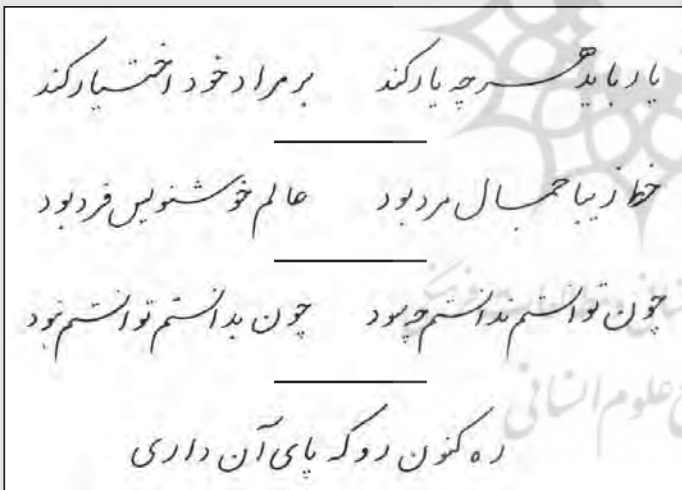 یار باید هر چه یار کند بر مراد خود اختیار کند
خط زیبا جمال مرد بود عالم خوشنویس فرد بود
چون توانستم ندانستم چه سود چون بدانستم توانستم نبود
ره کنون رو که پای آن داری
علوم انسانی